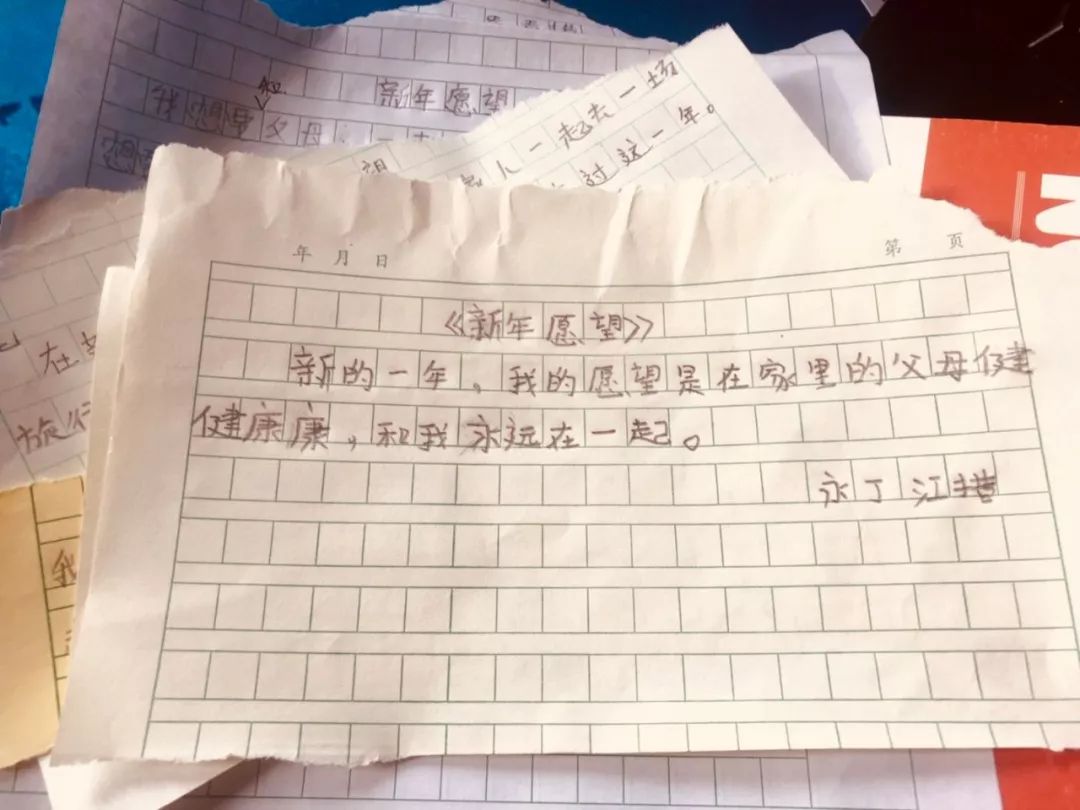 新年愿望
我想
和
父母
人一起去一场
过这一年。
年 月 日
第 页
《新年愿望》
新的一年，我的愿望是在家里的父母健
健康康，和我永远在一起。
永丁江
在
旅行
我